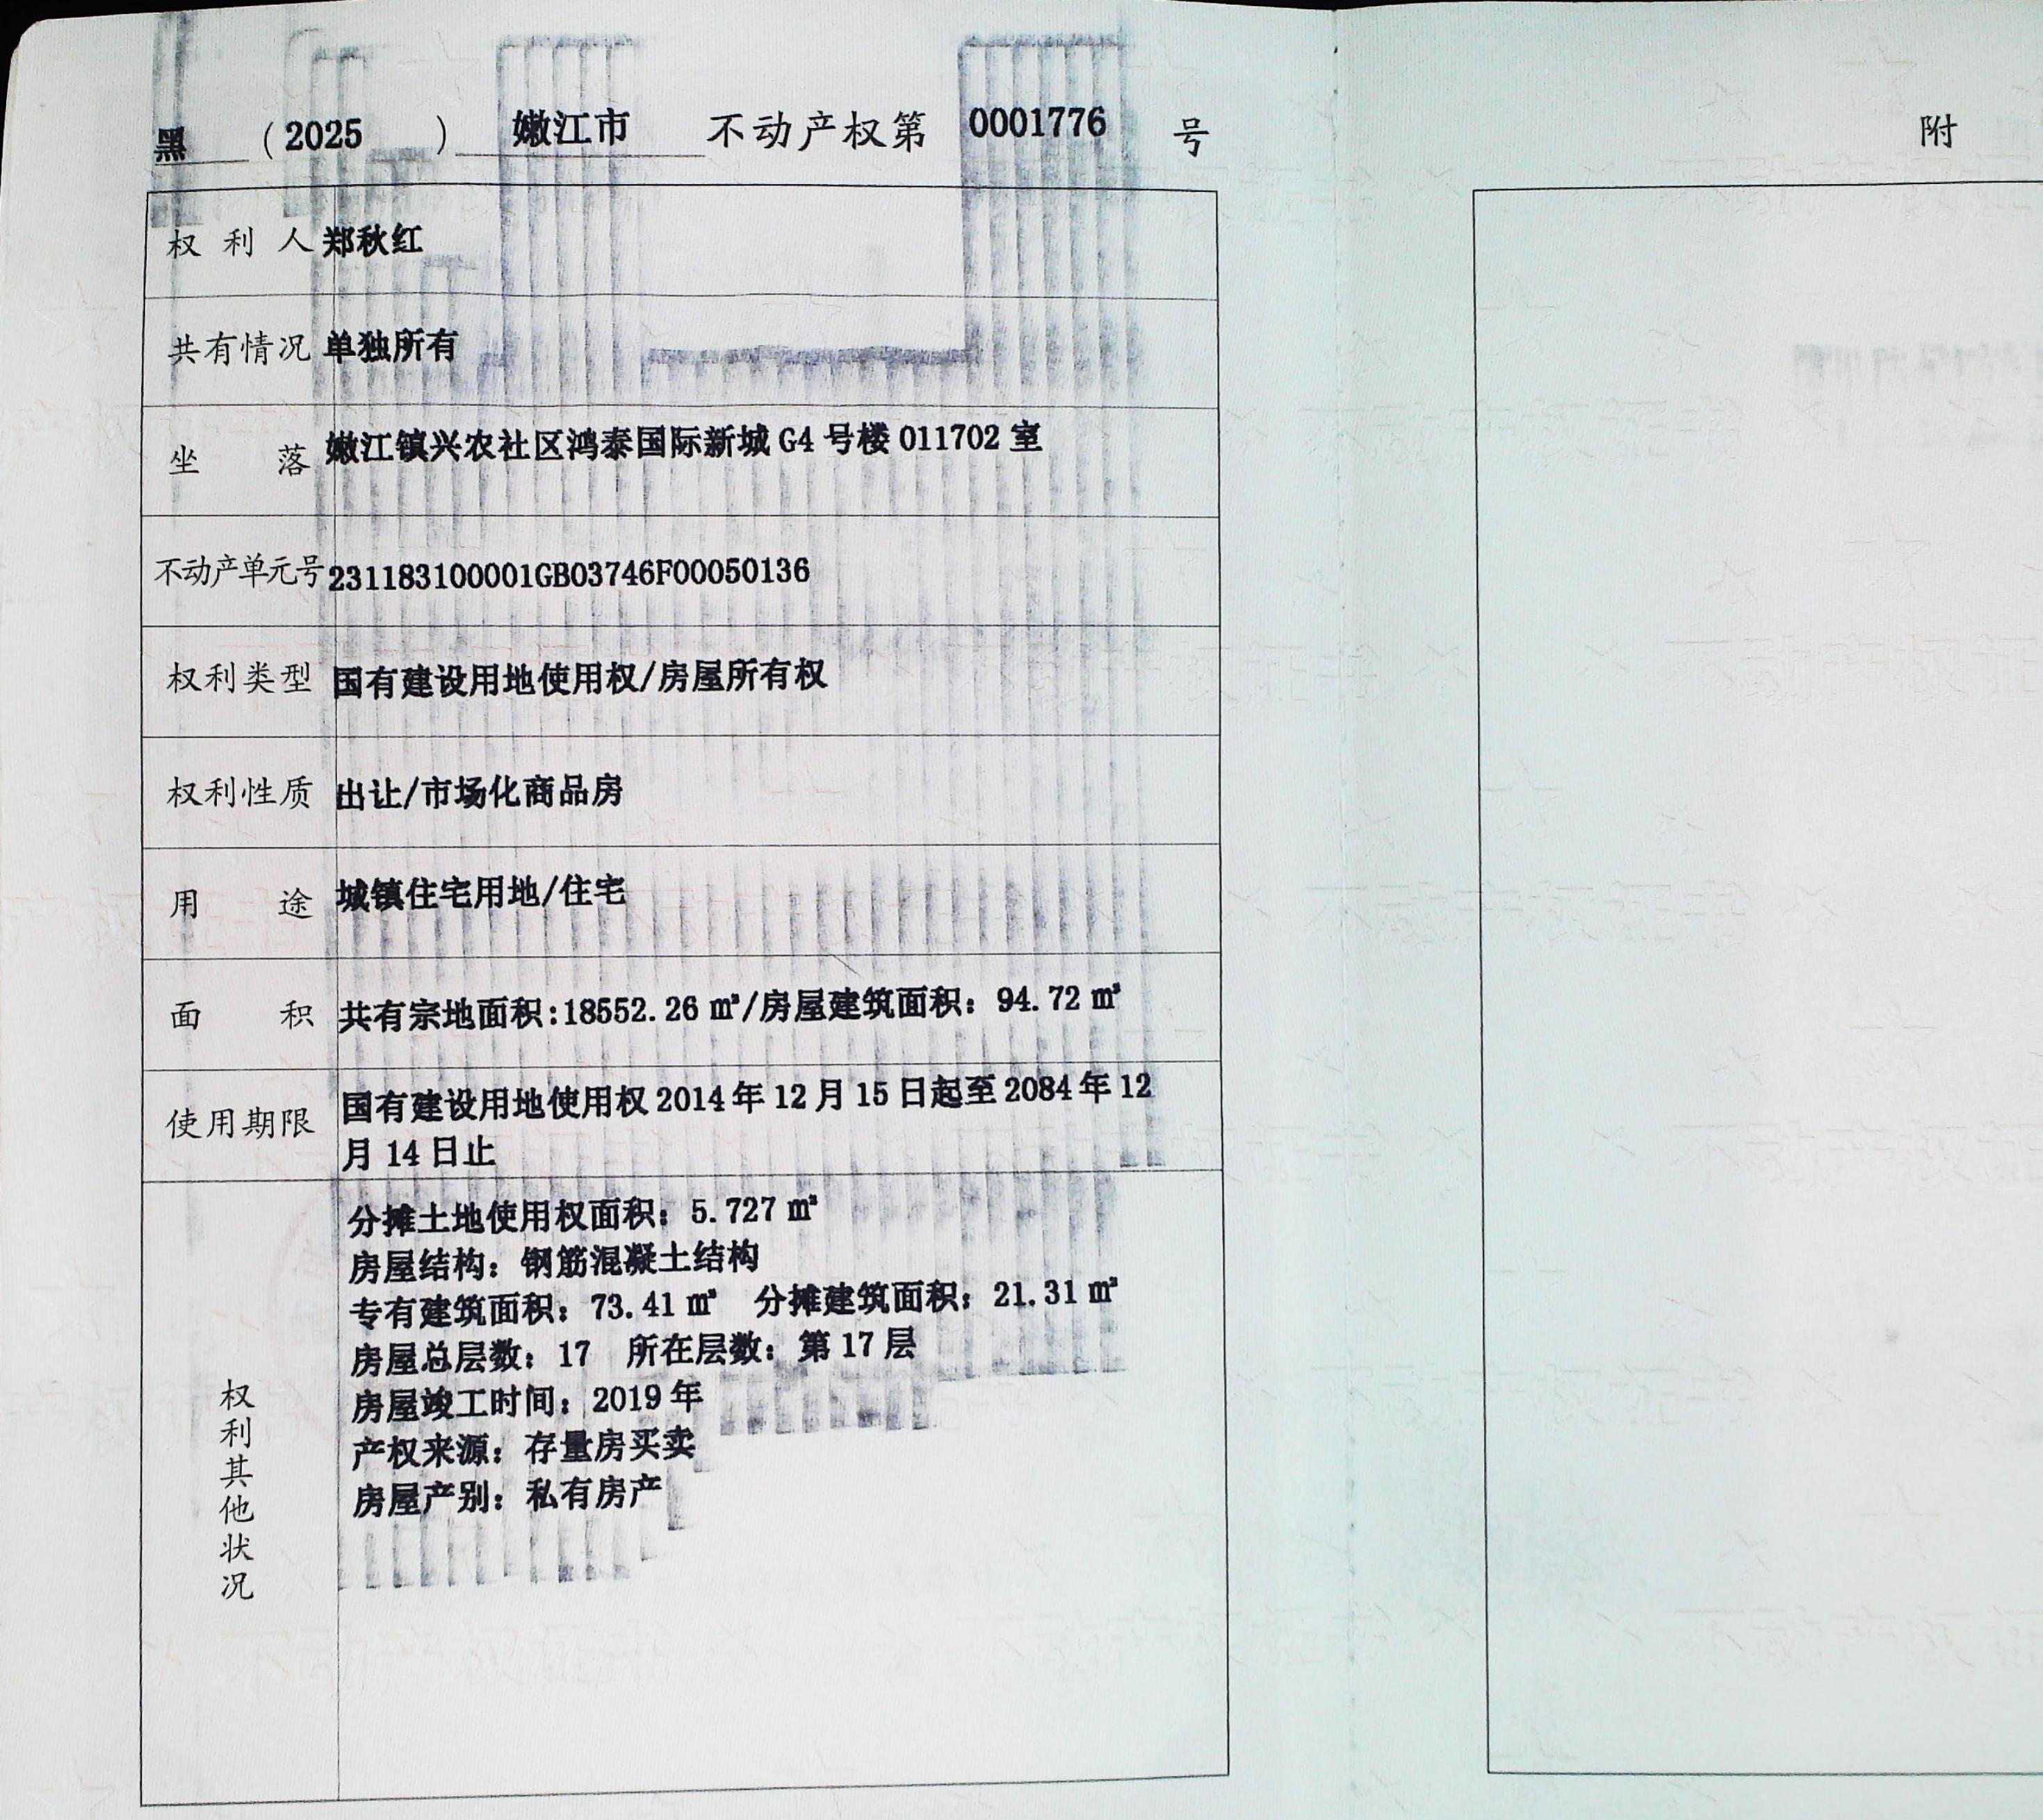 黑 (2025 ) 嫩江市 不动产权第 0001776 号
权利人 郑秋红
共有情况 单独所有
坐落 嫩江镇兴农社区鸿泰国际新城 G4 号楼 011702 室
不动产单元号 231183100001GB03746F00050136
权利类型 国有建设用地使用权/房屋所有权
权利性质 出让/市场化商品房
用途 城镇住宅用地/住宅
面积 共有宗地面积:18552.26 ㎡/房屋建筑面积：94.72 ㎡
使用期限 国有建设用地使用权 2014 年 12 月 15 日起至 2084 年 12
月 14 日止
权利其他状况
分摊土地使用权面积：5.727 ㎡
房屋结构：钢筋混凝土结构
专有建筑面积：73.41 ㎡ 分摊建筑面积：21.31 ㎡
房屋总层数：17 所在层数：第 17 层
房屋竣工时间：2019 年
产权来源：存量房买卖
房屋产别：私有房产
附